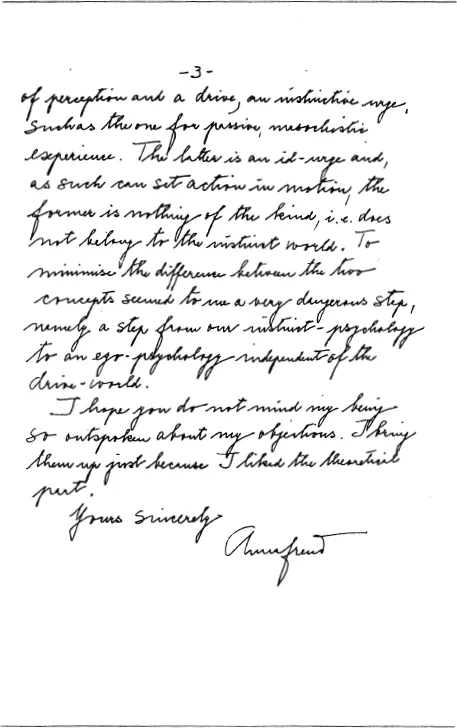 -3-
of perception and a drive, an instinctive urge,
such as the one for passive, masochistic
experience. The latter is an id-urge and,
as such can set action in motion, the
former is nothing of the kind, i.e. does
not belong to the instinct world. To
minimise the difference between the two
concepts seemed to me a very dangerous step,
namely a step from our instinct-psychology
to an ego-psychology independent of the
drive-world.
I hope you do not mind my being
so outspoken about my objections. I bring
them up just because I liked the theoretical
part.
Yours sincerely
Anna Freud